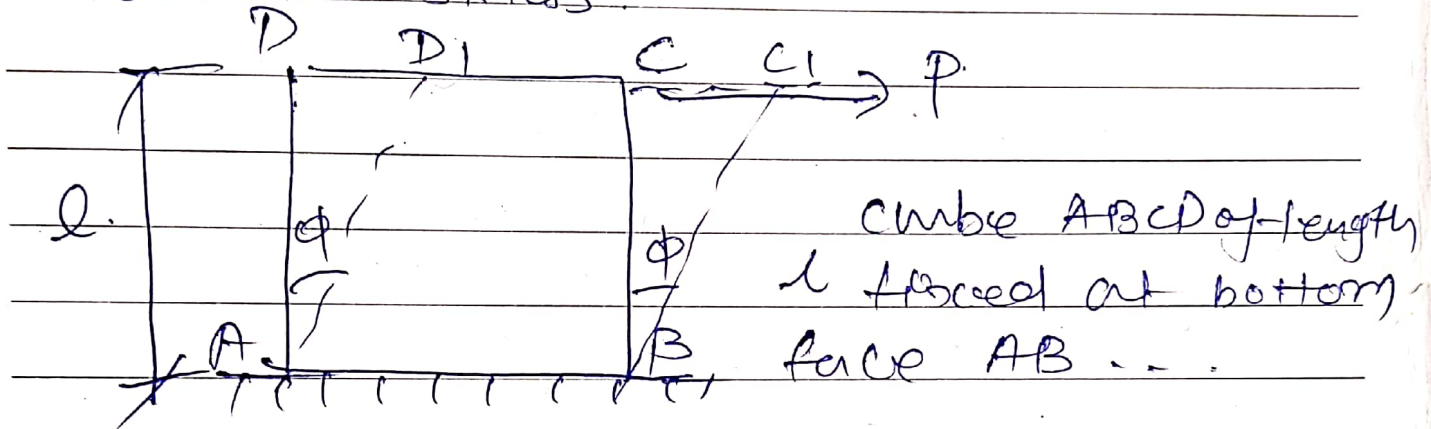 D D1 C C1 P.
l. φ φ cube ABCD of length
l fixed at bottom
A B face AB ....